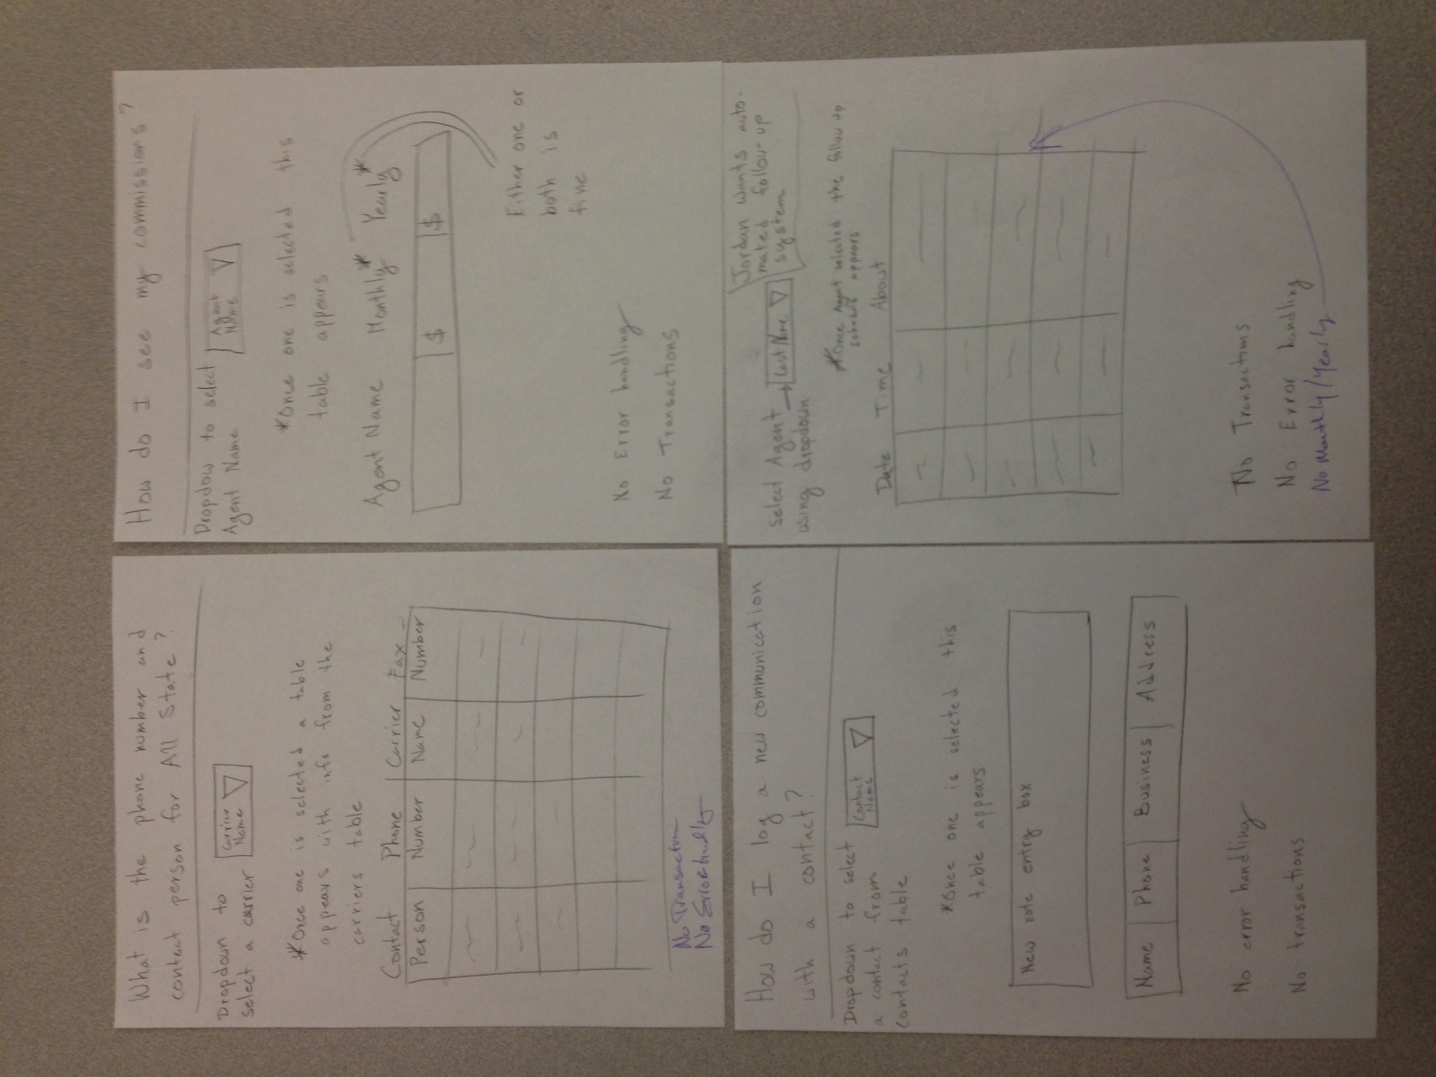 What is the phone number and
contact person for All State?
Dropdown to
select a carrier
Carrier
Name
*Once one is selected a table
appears with info from the
carriers table
Contact Phone Carrier Fax
Person Number Name Number
No Transactions
No Error handling
How do I see my commissions?
Dropdown to select
Agent Name
Agent
Name
*Once one is selected this
table appears
Agent Name Monthly* Yearly*
$ $
Either one or
both is
fine
No Error handling
No Transactions
How do I log a new communication
with a contact?
Dropdown to select
a contact from
contacts table
Contact
Name
*Once one is selected this
table appears
New note entry box
Name Phone Business Address
No error handling
No transactions
Jordan wants auto-
mated follow-up
system
Select Agent
using dropdown
Last Name
*Once Agent selected the follow up
appears
Date Time About
No Transactions
No Error handling
No Monthly/Yearly